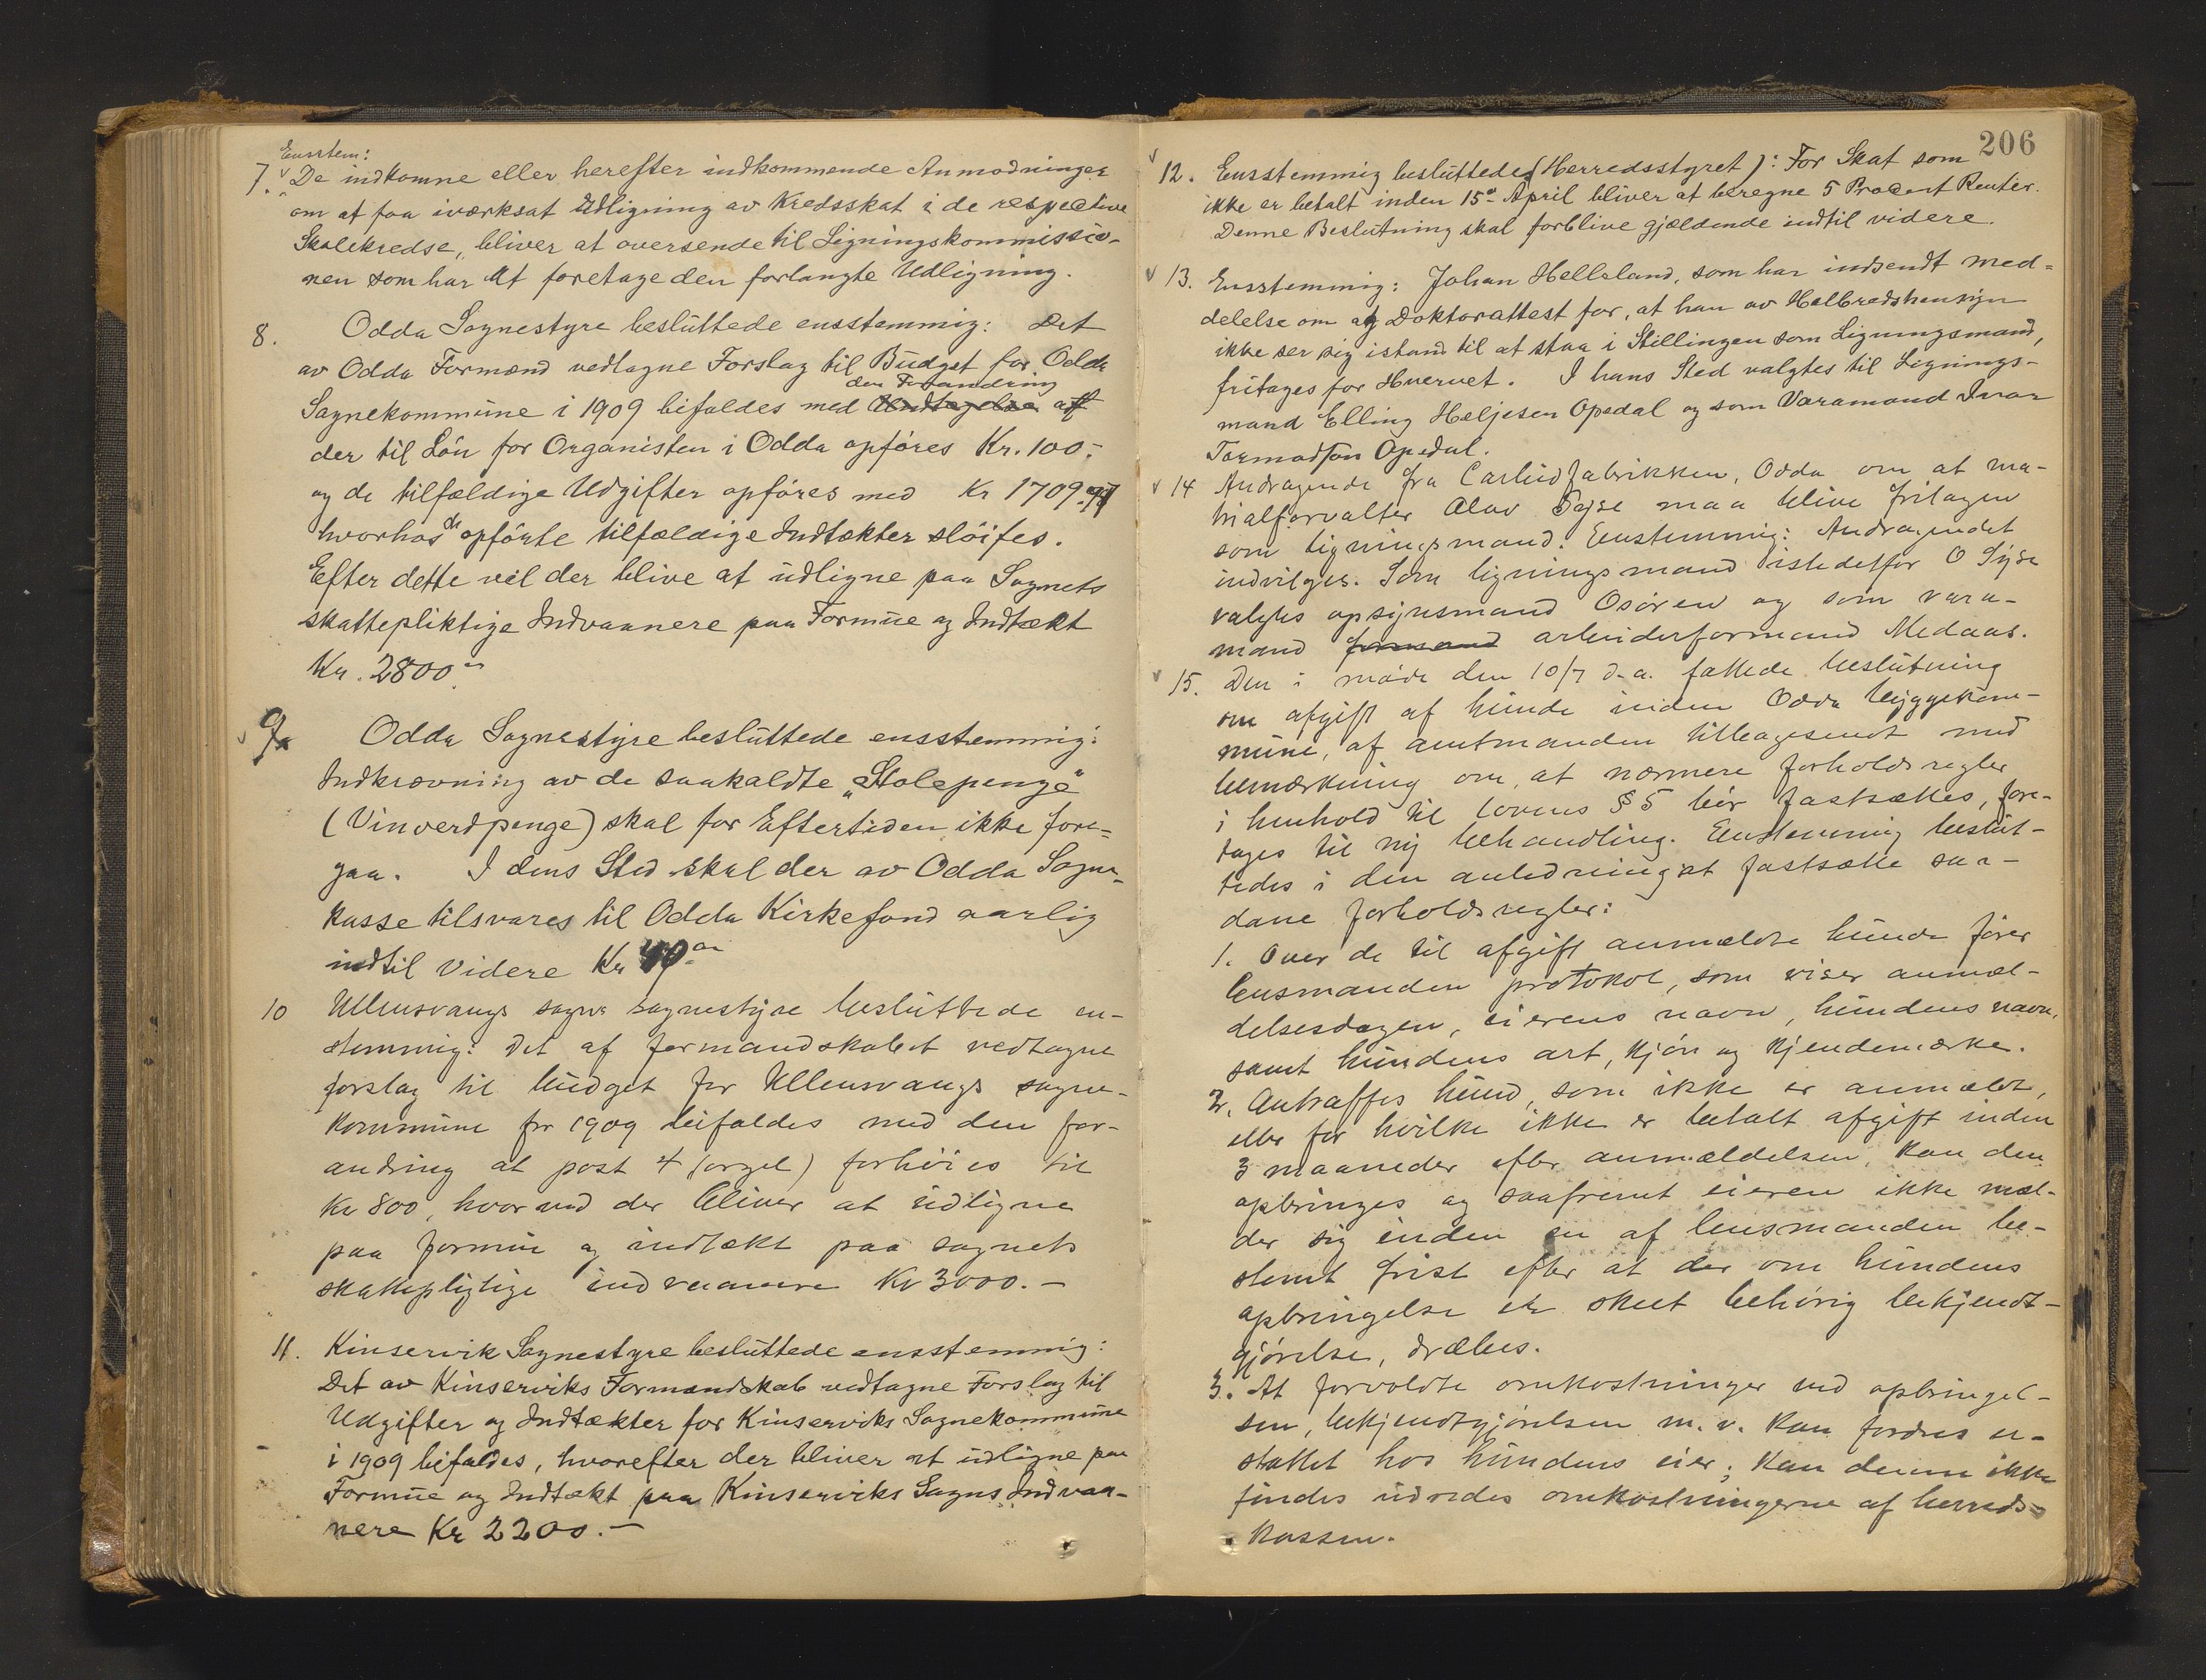 Eensstem:
7. De indkomne eller herefter indkommende Anmodninger
om at faa iværksat Udligning av Kredsskat i de respective
Skolekredse, bliver at oversende til Ligningskommissio-
nen som har At foretage den forlangte Udligning.
8. Odda Sognestyre besluttede ensstemmig: Det
av Odda Formænd vedtagne Forslag til Budget for Odda
den Forandring
Sognekommune i 1909 bifaldes med Undtagelse att
der til Løn for Organisten i Odda opføres Kr. 100.-
og de tilfældige Udgifter opføres med Kr 1709.97
hvorhos de opførte tilfældige Indtækter sløifes.
Efter dette vil der blive at udligne paa Sognets
skattepliktige Indvaanere paa Formue og Indtækt
Kr. 2800.-
9. Odda Sognestyre besluttede ensstemmig:
Indkrævning av de saakaldte "Stolepenge"
(Vinverdpenge) skal for Eftertiden ikke fore-
gaa. I dens Sted skal der av Odda Sogne-
kasse tilsvares til Odda Kirkefond aarlig
indtil Videre Kr 40
10 Ullensvangs sogns sognestyre besluttede en-
stemmig: Det af formandskabet vedtagne
forslag til budget for Ullensvangs sogne-
kommune for 1909 bifaldes med den for-
andring at post 4 (orgel) forhøies til
Kr 800, hvorved der bliver at udligne
paa formue og indtækt paa sognets
skattepligtige indvaanere Kr 3000.-
11. Kinservik Sognestyre besluttede ensstemmig:
Det av Kinserviks Formandskab vedtagne Forslag til
Udgifter og Indtækter for Kinserviks Sognekommune
i 1909 bifaldes, hvorefter der bliver at udligne paa
Formue og Indtækt paa Kinserviks Sogns Indvaa-
nere Kr 2200.-
206
12. Eensstemmig besluttedes (Herredsstyret): For Skat som
ikke er betalt inden 15de April bliver at beregne 5 Procent Renter.
Denne Beslutning skal forblive gjældende indtil videre.
13. Ensstemmig: Johan Helleland, som har indsendt med-
delelse om og Doktorattest for, at han av Helbredshensyn
ikke ser sig istand til at staa i Stillingen som Ligningsmand,
fritages for Hvervet. I hans Sted valgtes til Lignings-
mand Elling Heljesen Opedal og som Varamand Ivar
Tormodson Opedal.
14 Andragende fra Carbidfabrikken, Odda om at ma-
trialforvalter Olav Syse maa blive fritagen
som ligningsmand. Eenstemmig: Andragendet
indvilges. Som ligningsmand istedetfor O Syse
valgtes opsynsmand Osøren og som vara-
mand formand arbeiderformand Medaas.
15. Den i møde den 10/7 d.a. fattede beslutning
om afgift af hunde inden Odda byggekom-
mune, af amtmanden tilbagesendt med
bemærkning om, at nærmere forholdsregler
i henhold til lovens § 5 bør fastsættes, fore-
tages til ny behandling. Eenstemmig beslut-
tedes i den anledning at fastsætte saa-
dane forholdsregler:
1. Over de til afgift anmeldte hunde fører
lensmanden protokol, som viser anmel-
delsesdagen, eierens navn, hundens navn,
samt hundens art, kjøn og kjendemærke.
2. Antræffes hund, som ikke er anmældt,
eller for hvilke ikke er betalt afgift inden
3 maaneder efter anmældelsen, kan den
opbringes og saafremt eieren ikke mel-
der sig inden en af lensmanden be-
stemt frist efter at der om hundens
opbringelse er skeet behørig bekjendt-
gjørelse, dræbes.
3. At forvoldte omkostninger ved opbringel-
sen, bekjendtgjørelsen m.v. kan fordres er-
stattet hos hundens eier; kan denne ikke
findes udredes omkostningerne af herreds-
kassen.